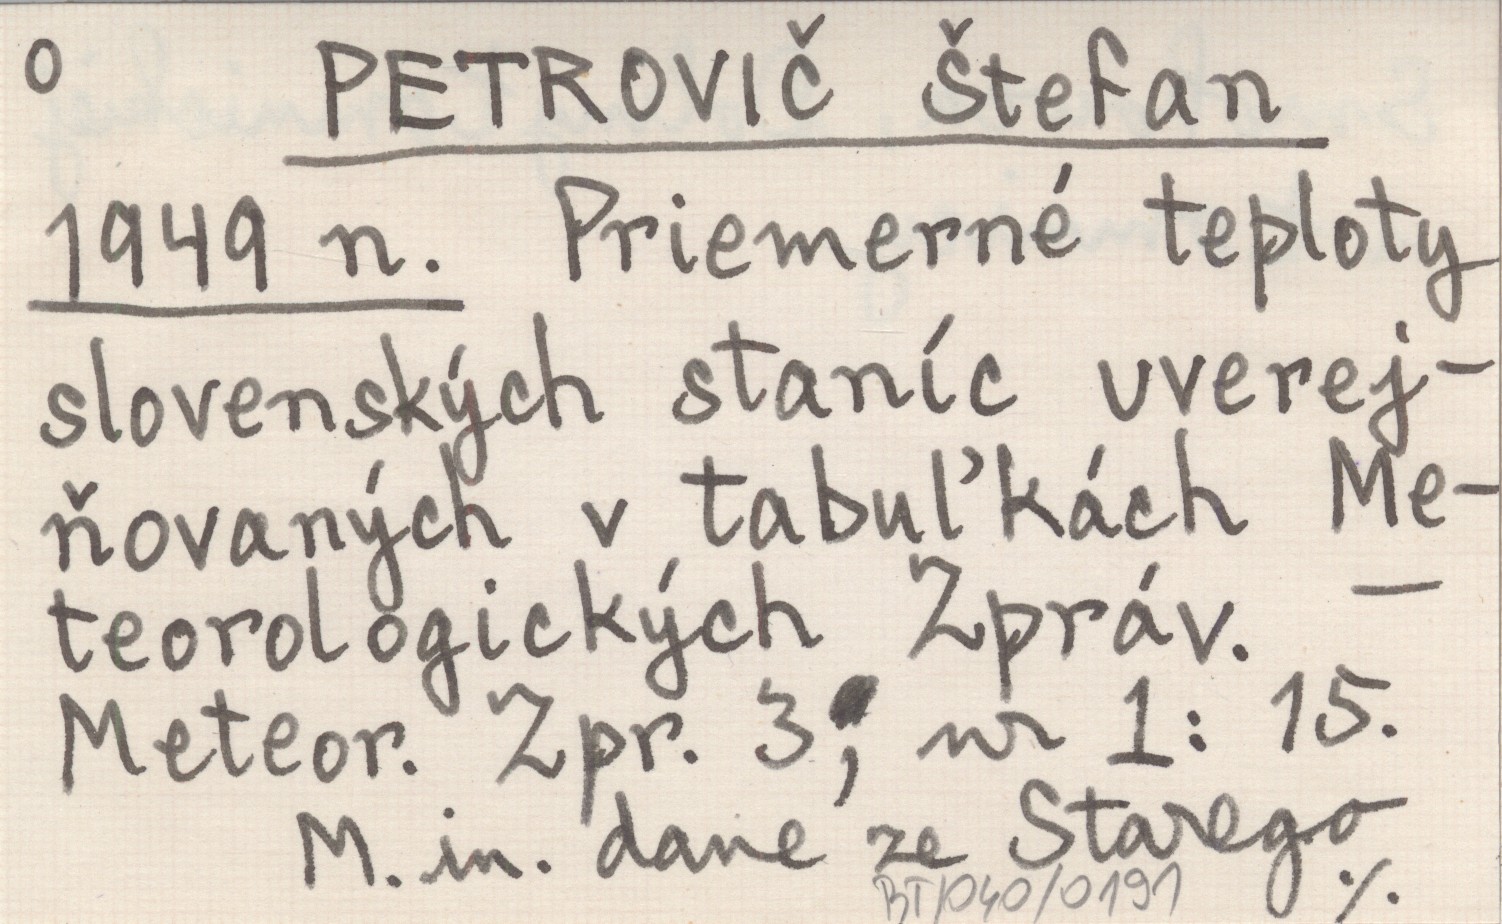 O PETROVIČ Štefan
1949 n. Priemerné teploty
slovenských staníc uverej-
ňovaných v tabuľkách Me-
teorologických Zpráv. —
Meteor. Zpr. 3, nr 1: 15.
M. in. dane ze Starego
BT/040/0191 ./.